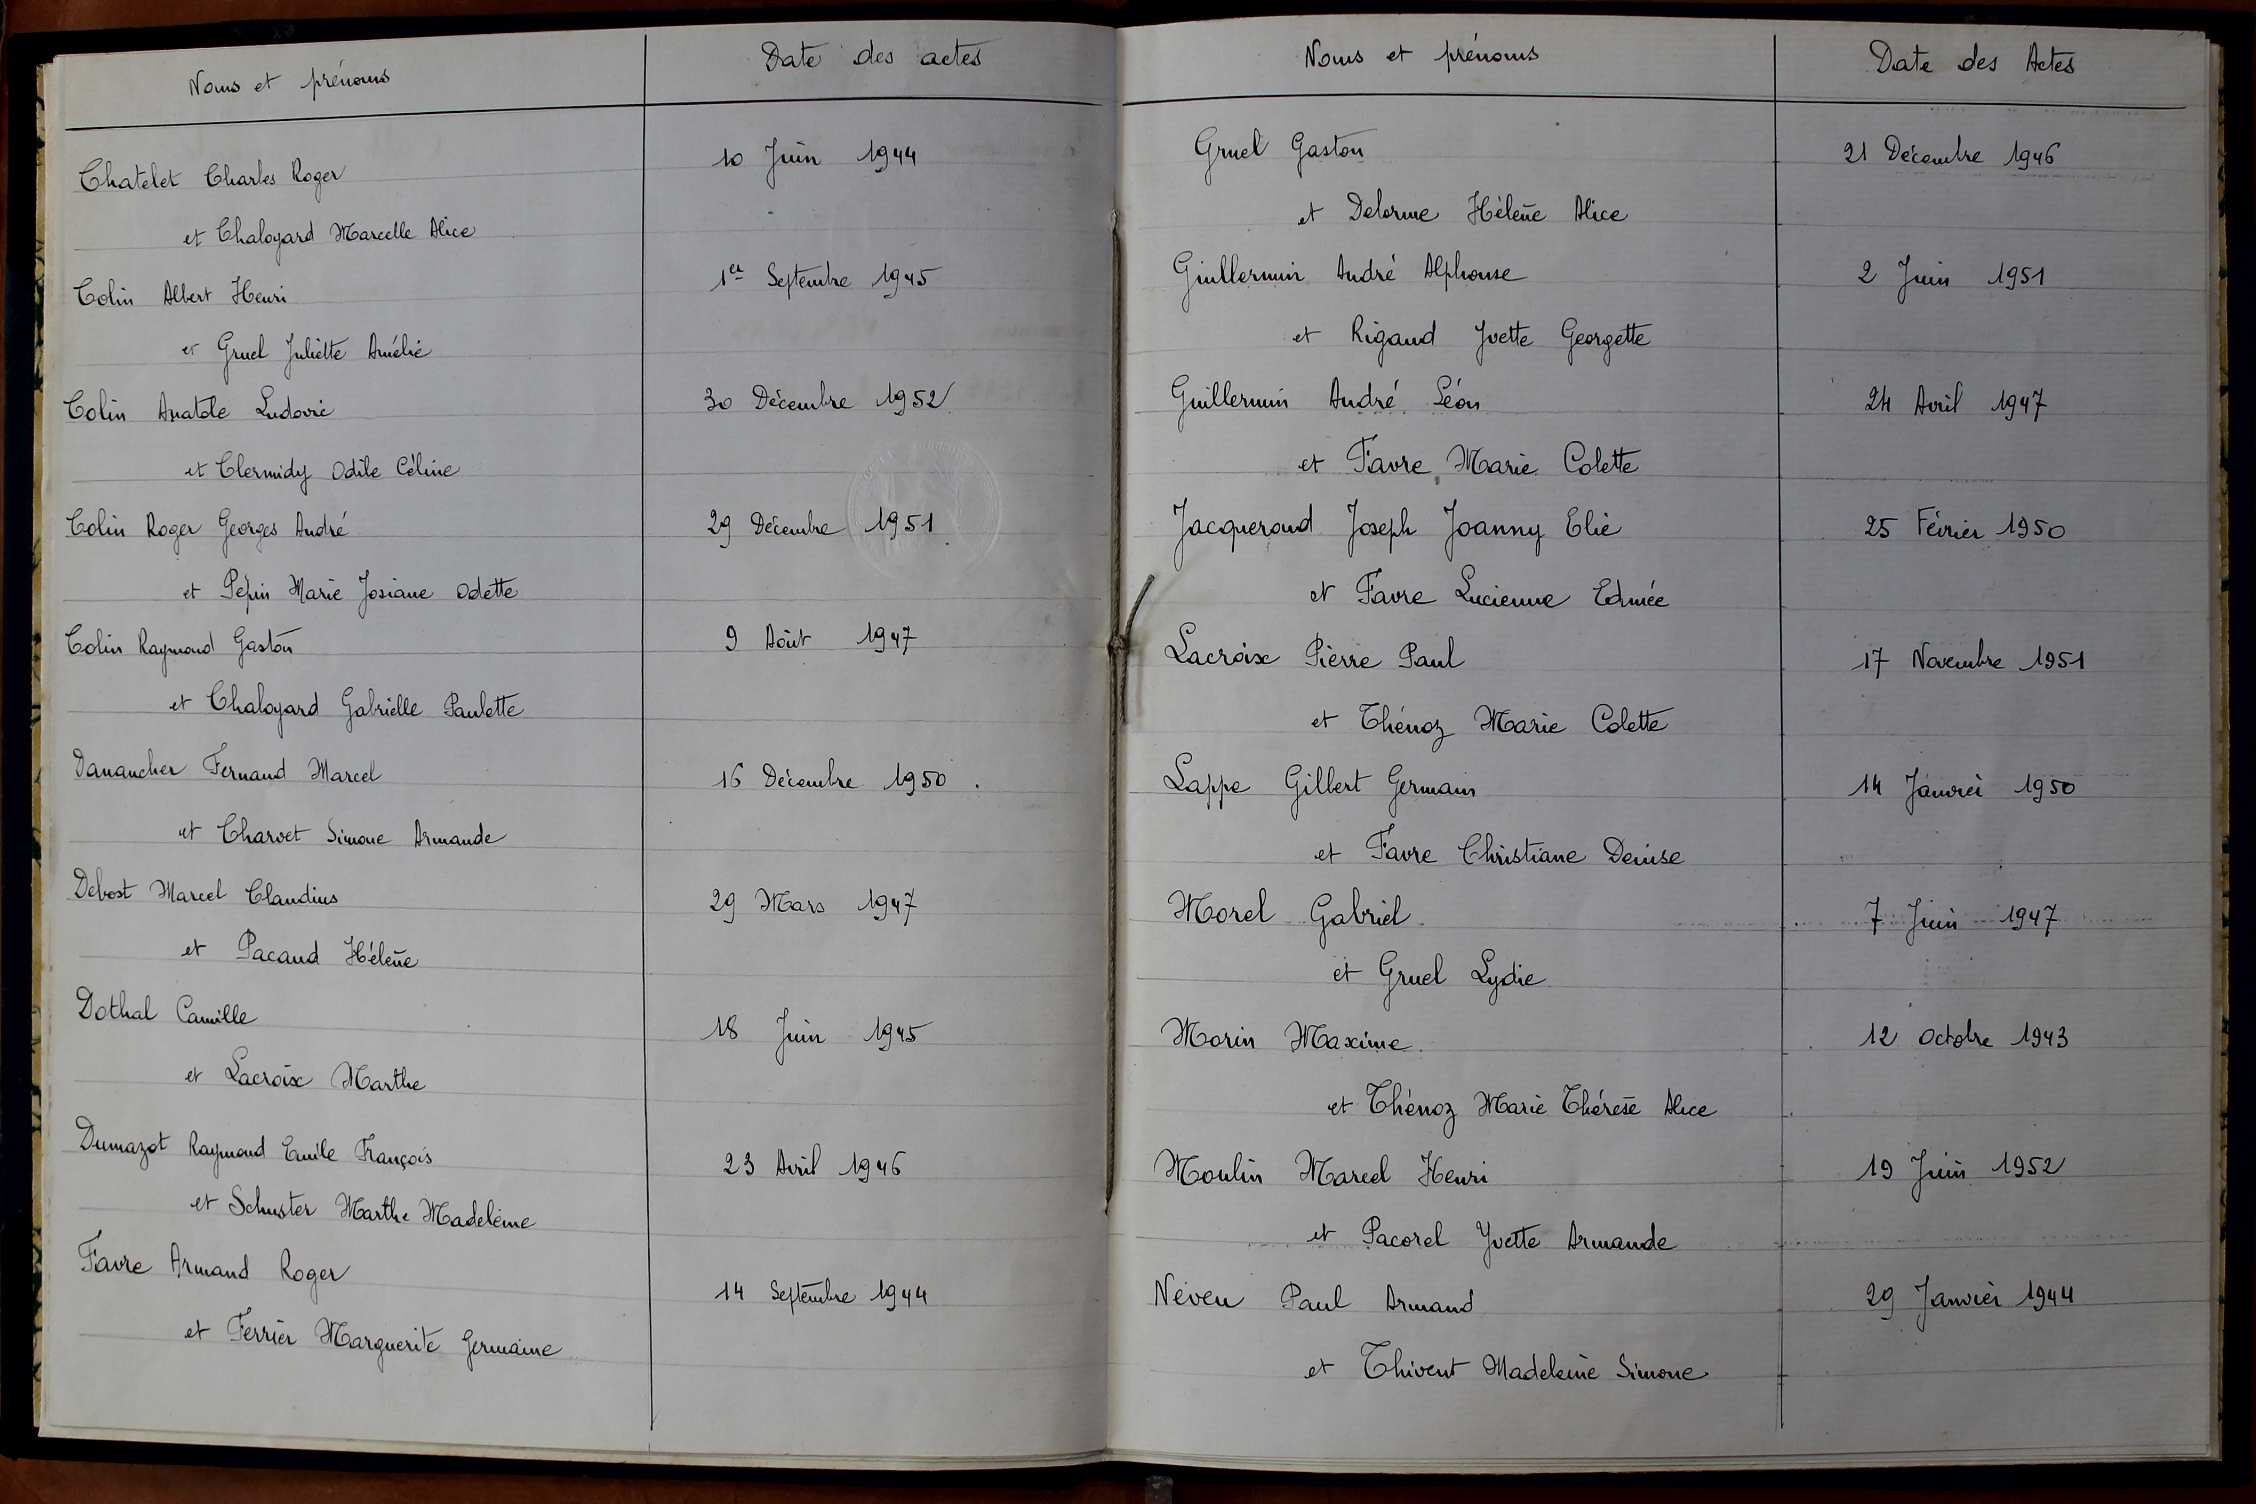 Noms et prénoms
Date des actes
Chatelet Charles Roger
10 Juin 1944
et Chaloyard Marcelle Alice
Colin Albert Henri
1er Septembre 1945
et Gruel Juliette Amélie
Colin Anatole Ludovic
30 Décembre 1952
et Clermidy Odile Céline
Colin Roger Georges André
29 Décembre 1951
et Pépin Marie Josiane Odette
Colin Raymond Gaston
9 Août 1947
et Chaloyard Gabrielle Paulette
Danancher Fernand Marcel
16 Décembre 1950.
et Charvet Simone Armande
Debost Marcel Claudius
29 Mars 1947
et Pacaud Hélène
Dothal Camille
18 Juin 1945
et Lacroix Marthe
Dumazot Raymond Emile François
23 Avril 1946
et Schuster Marthe Madeleine
Favre Armand Roger
14 Septembre 1944
et Ferrier Marguerite Germaine
Noms et prénoms
Date des Actes
Gruel Gaston
21 Décembre 1946
et Delorme Hélène Alice
Guillermin André Alphonse
2 Juin 1951
et Rigaud Yvette Georgette
Guillermin André Léon
24 Avril 1947
et Favre Marie Colette
Jacqueroud Joseph Joanny Elie
25 Février 1950
et Favre Lucienne Edmée
Lacroix Pierre Paul
17 Novembre 1951
et Thénoz Marie Colette
Lappe Gilbert Germain
14 Janvier 1950
et Favre Christiane Denise
Morel Gabriel
7 Juin 1947
et Gruel Lydie
Morin Maxime
12 Octobre 1943
et Thénoz Marie Thérèse Alice
Moulin Marcel Henri
19 Juin 1952
et Pacorel Yvette Armande
Neveu Paul Armand
29 Janvier 1944
et Thivent Madeleine Simone